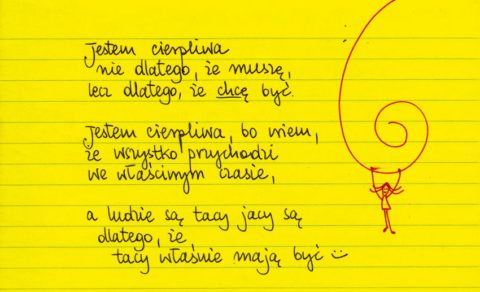 Jestem cierpliwa
nie dlatego, że muszę,
lecz dlatego, że chcę być.
Jestem cierpliwa, bo wiem,
że wszystko przychodzi
we właściwym czasie,
a ludzie są tacy jacy są
dlatego, że
tacy właśnie mają być